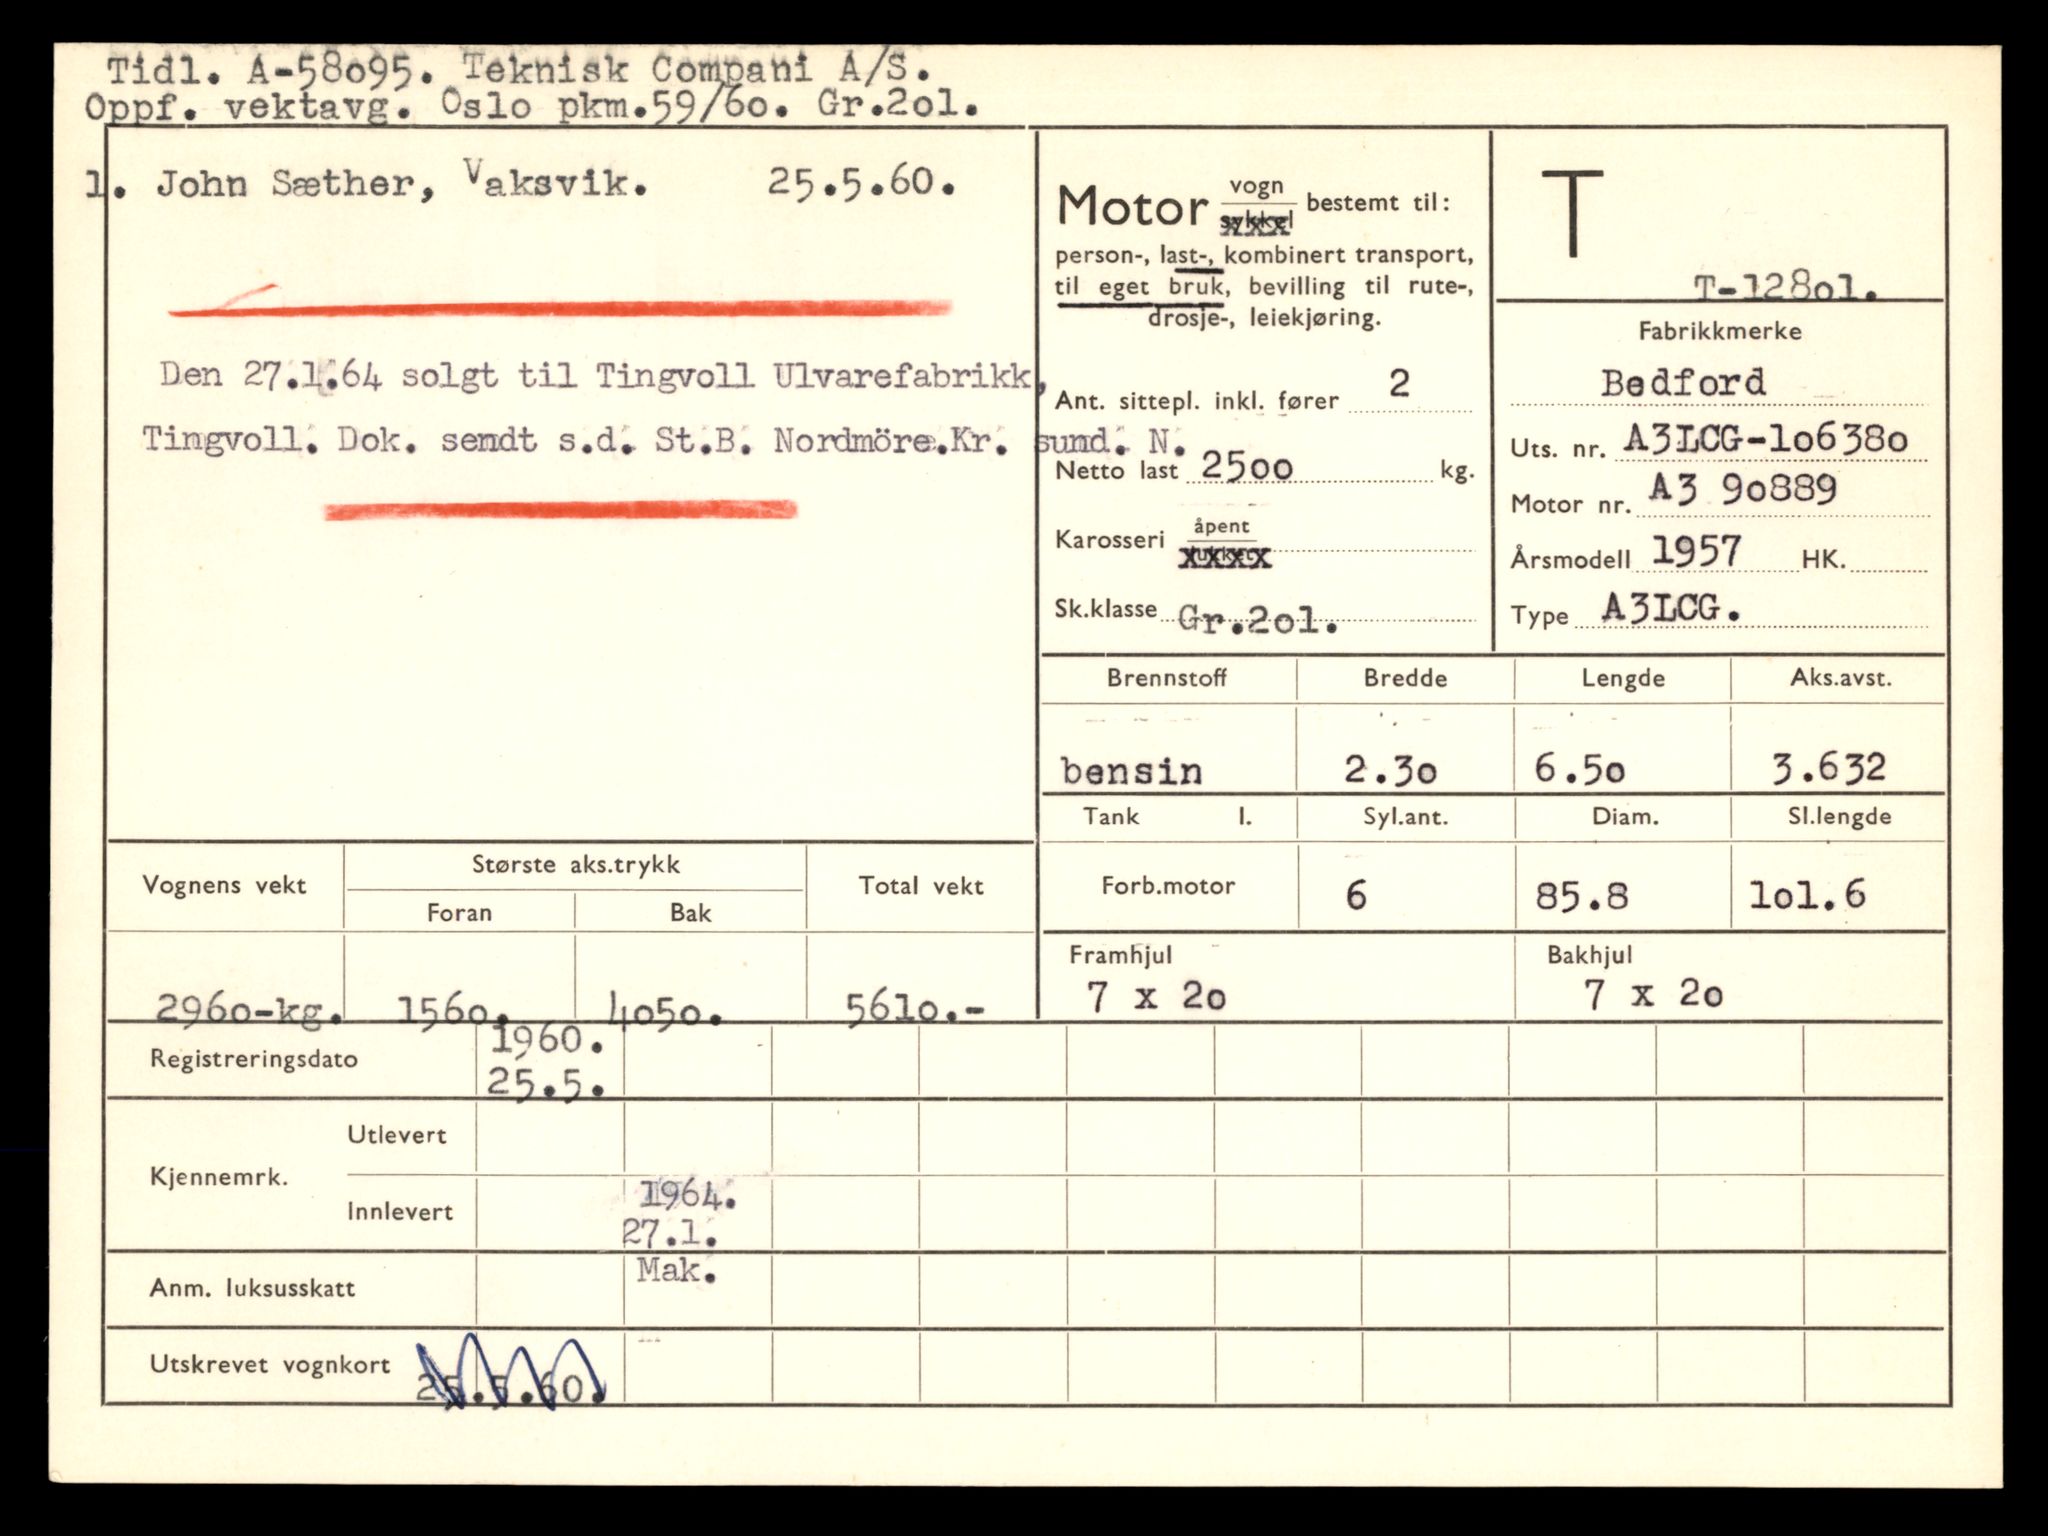 Tidl. A-58o95. Teknisk Compani A/S.
Oppf. vektavg. Oslo pkm.59/6o. Gr.2ol.
1. John Sæther, Vaksvik. 25.5.60.
Den 27.1.64 solgt til Tingvoll Ulvarefabrikk,
Tingvoll. Dok. sendt s.d. St.B. Nordmöre.Kr. sund. N.
Motor vogn
sykkel
bestemt til:
person-, last-, kombinert transport,
til eget bruk, bevilling til rute-,
drosje-, leiekjøring.
Ant. sittepl. inkl. fører 2
Netto last 25oo kg.
Karosseri åpent
lukket
Sk.klasse Gr.2ol.
T
T-128ol.
Fabrikkmerke
Bedford
Uts. nr. A3LCG-1o638o
Motor nr. A3 9o889
Årsmodell 1957 HK.
Type A3LCG.
Brennstoff Bredde Lengde Aks.avst.
bensin 2.3o 6.5o 3.632
Tank l. Syl.ant. Diam. Sl.lengde
Forb.motor 6 85.8 lol.6
Framhjul Bakhjul
7 x 2o 7 x 2o
Vognens vekt Største aks.trykk Total vekt
Foran Bak
296o-kg. 156o. 4o5o. 561o.-
Registreringsdato 1960.
25.5.
Kjennemrk. Utlevert
Innlevert 1964.
27.1.
Mak.
Anm. luksusskatt
Utskrevet vognkort 25.5.60.